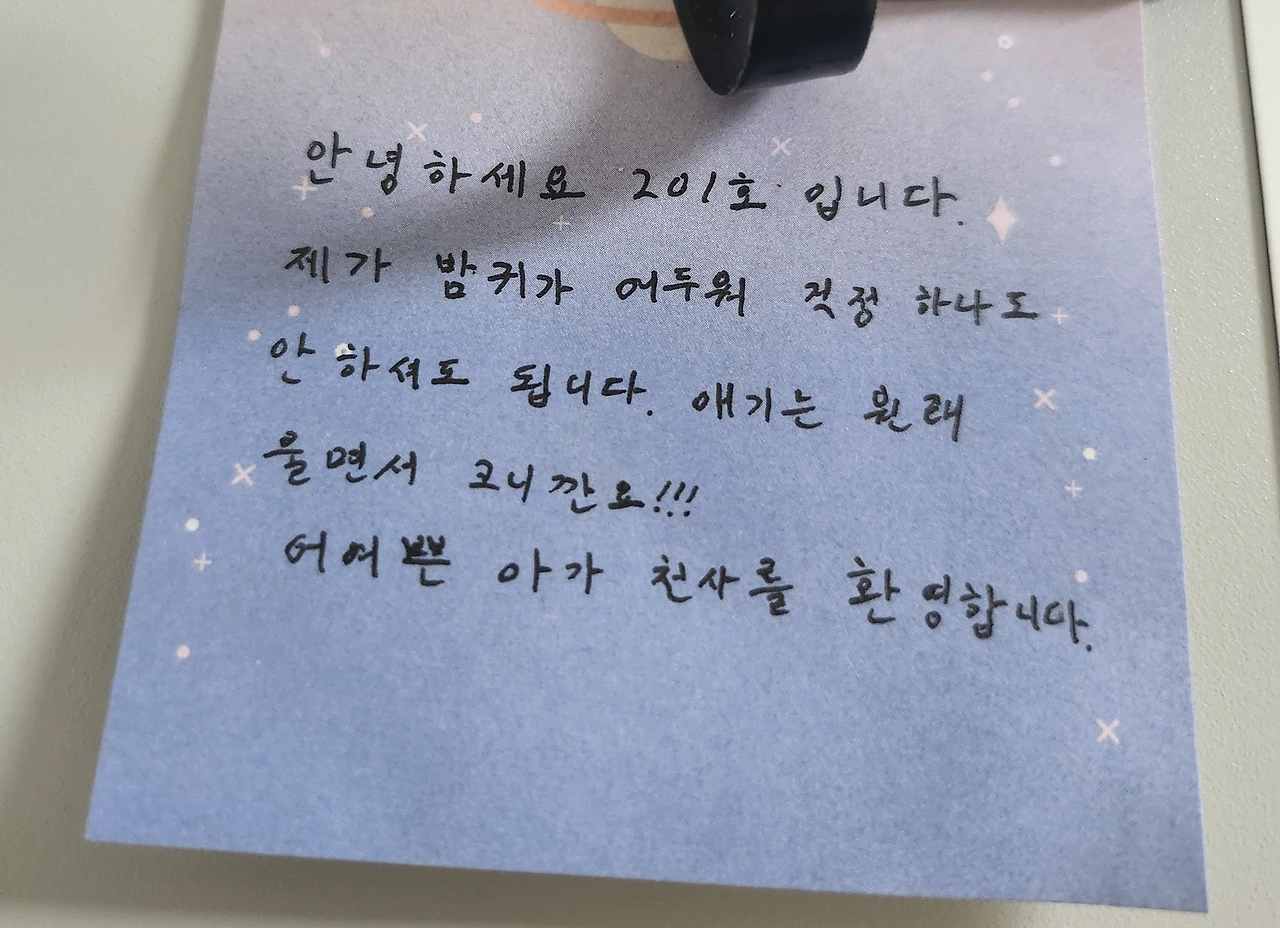 안녕하세요 201호 입니다.
제가 밤귀가 어두워 걱정 하나도
안 하셔도 됩니다. 애기는 원래
울면서 크니깐요!!!
어여쁜 아가 천사를 환영합니다.